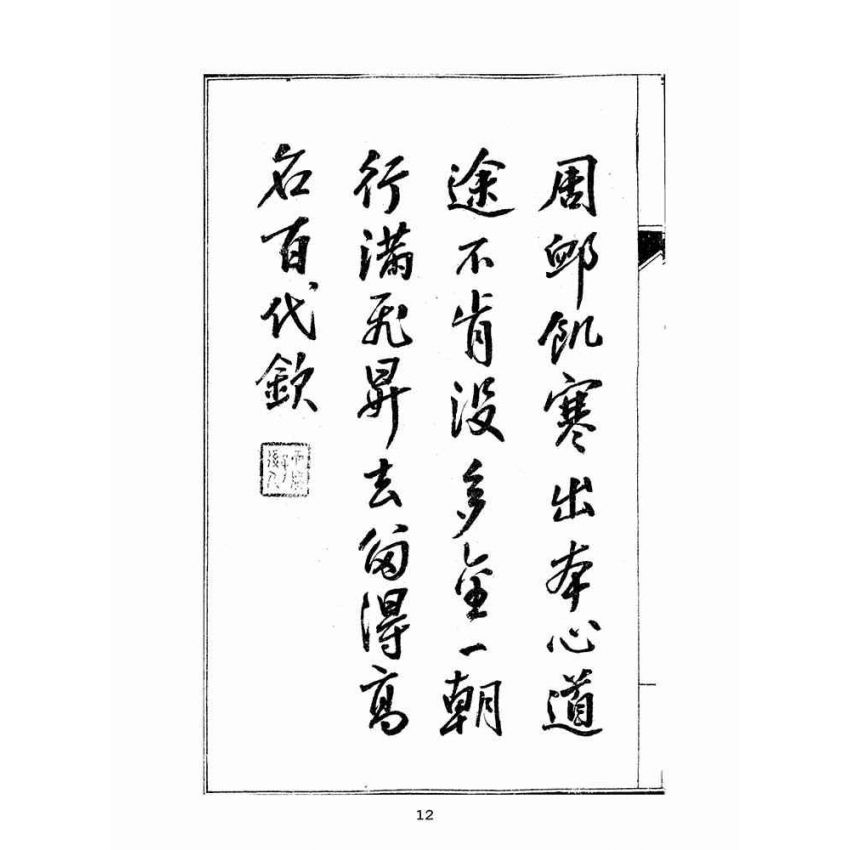 周卹飢寒出本心道
途不肯没多金一朝
行滿飛昇去留得高
名百代欽
12